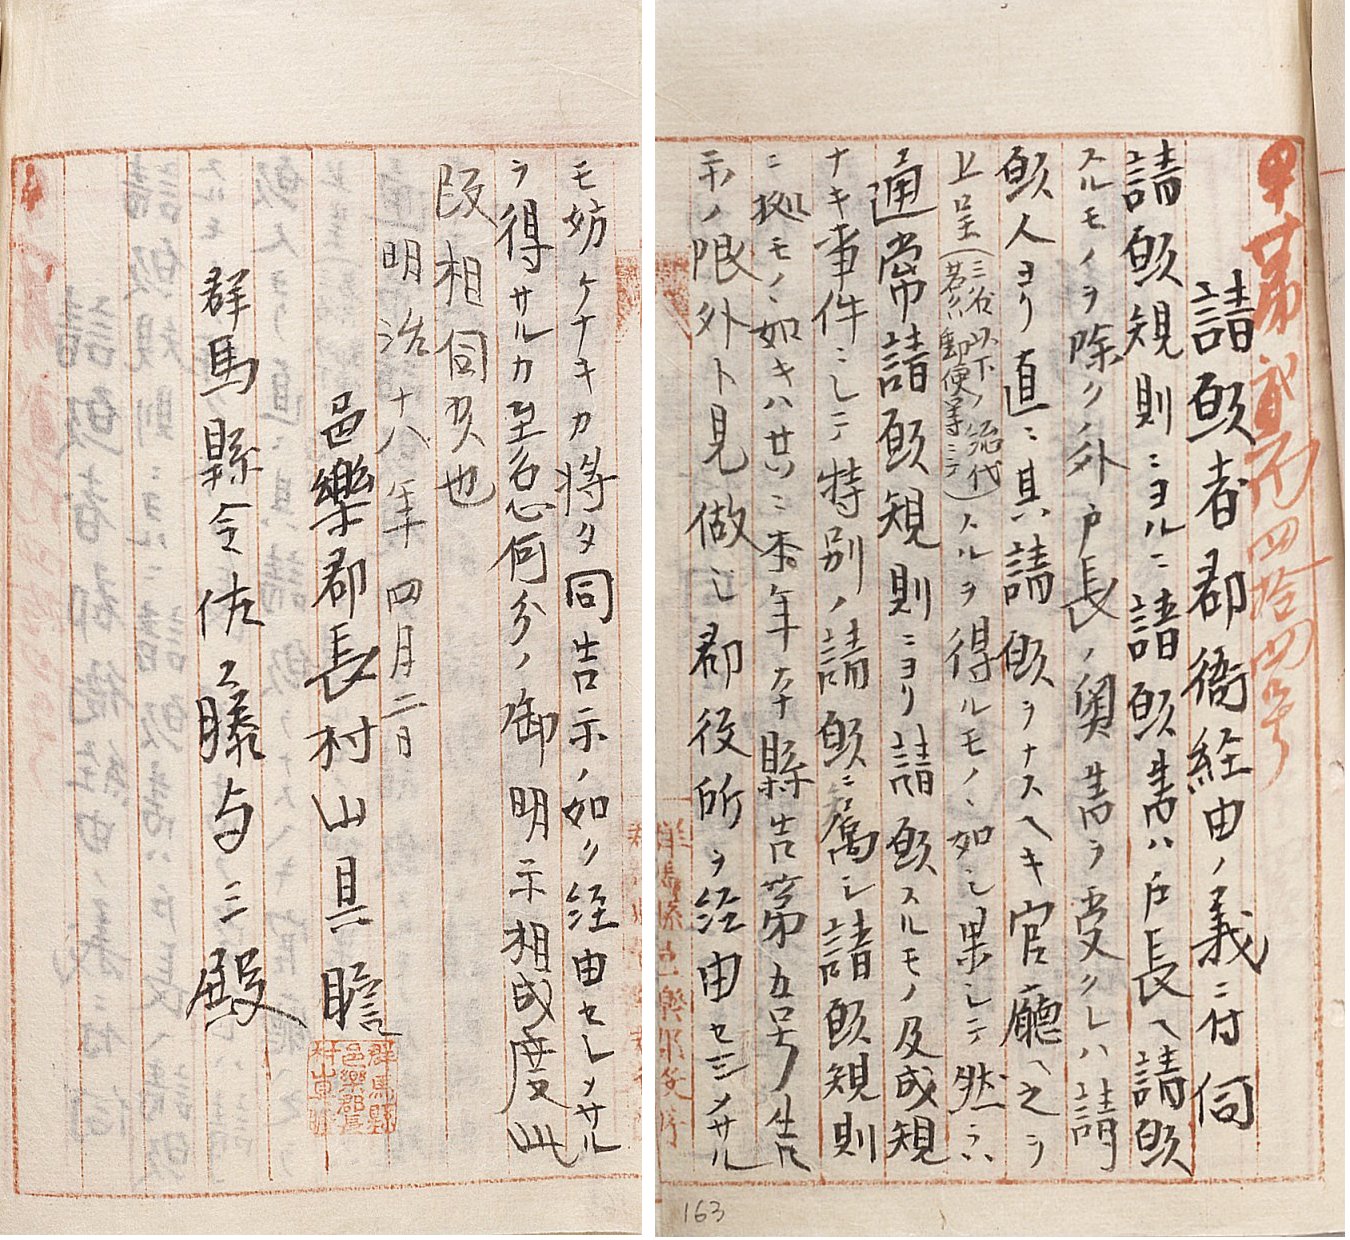 甲第貳百四拾四号
請願者郡衙経由ノ義ニ付伺
請願規則ニヨルニ請願書ハ戸長ヘ請願
スルモノヲ除クノ外戸長ノ奥書ヲ受クレハ請
願人ヨリ直ニ其請願ヲナスヘキ官廳ヘ之ヲ
上呈(三谷以下ノ総代若クハ郵便等ニテ)スルヲ得ルモノヽ如シ果シテ然ラハ
通常請願規則ニヨリ請願スルモノ及成規
ナキ事件ニシテ特別ノ請願ニ属シ請願規則
ニ拠モノヽ如キハ廿ハニ本年本縣告第五号告
示ノ限外ト見做シ郡役所ヲ経由セシメサル
モ妨ケナキカ将タ同告示ノ如ク経由セシメサル
ヲ得サルカ至急何分ノ御明示相成度此
段相伺候也
明治十八年四月二日
邑樂郡長村山具瞻
群馬縣邑樂郡長村山具瞻
群馬縣令佐藤与三殿
163